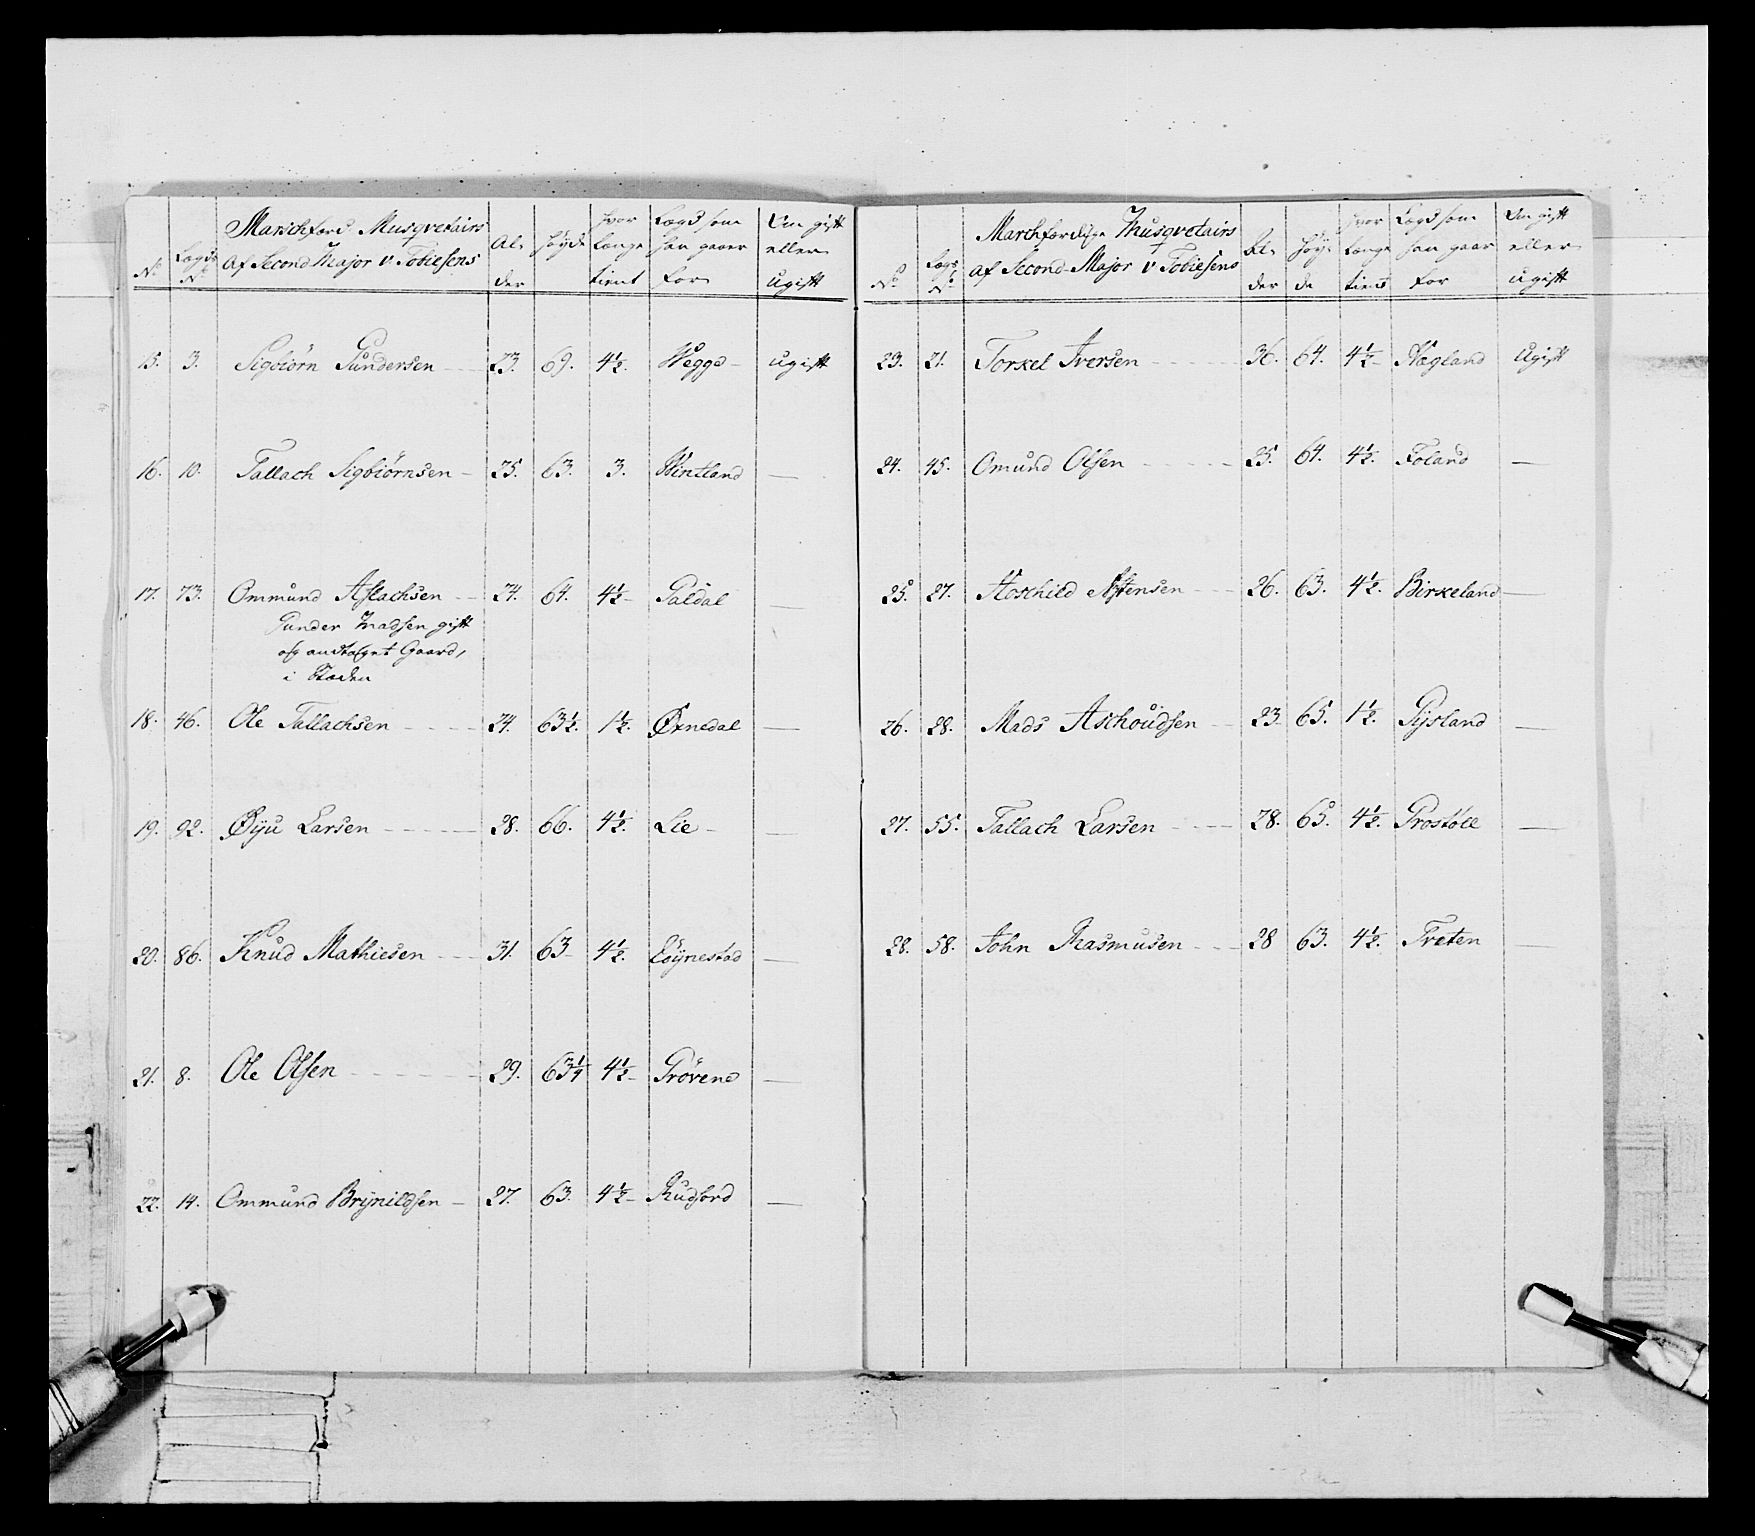 No | Lægds No | Marschferd. Musqvetairs af Second Major v Tobiesens | Alder | Høyde | Hvor Længe tient | Lægd som han gaaer for | Om gift eller Ugift
15. | 3. | Sigbiörn Gundersen | 23. | 69. | 4 1/2. | Wegge | Ugift
16. | 10. | Tallach Sigbiörnsen | 25. | 63. | 3. | Wintland | —
17. | 73. | Ommund Aslachsen | 24. | 64. | 4 1/2 | Galdal
Gunder Madsen gift
og andtaget Gaard,
i Stæden
18. | 46. | Ole Tallachsen | 24. | 63 1/2. | 1 1/2. | Øxnedal | —
19. | 92. | Øyu Larsen | 28. | 66. | 4 1/2. | Lie | —
20. | 86. | Knud Mathiesen | 31. | 63 | 4 1/2. | Eöynestad | —
21. | 8. | Ole Olsen | 29. | 63 1/4 | 4 1/2 | Prövend | —
22. | 14. | Ommund Brynildsen | 27. | 63. | 4 1/2 | Rudsord | —
No. | Lægs No. | Marchfærdige Musqvetairs af Second Major v Tobiesens | Alder | Høyde | Hvor Længe tient | Lægd som han gaar for | Om gift eller Ugift
23. | 21. | Torkel Iversen | 36. | 64. | 4 1/2 | Nægland | Ugift
24. | 45. | Omund Olsen | 25. | 64. | 4 1/2. | Foland | —
25. | 27. | Hoskild Östensen | 26. | 63. | 4 1/2. | Birkeland | —
26. | 28. | Mads Askoudsen | 23 | 65. | 1 1/2. | Gysland | —
27. | 55. | Tallach Larsen | 28. | 65. | 4 1/2. | Prostöll | —
28. | 58. | John Rasmusen | 28 | 63. | 4 1/2. | Træten